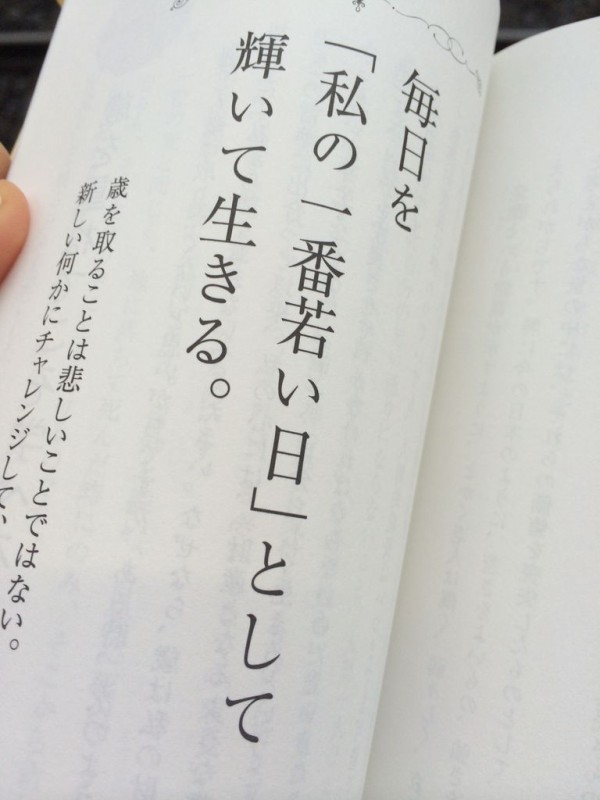 毎日を
「私の一番若い日」として
輝いて生きる。
歳を取ることは悲しいことではない。
新しい何かにチャレンジして、